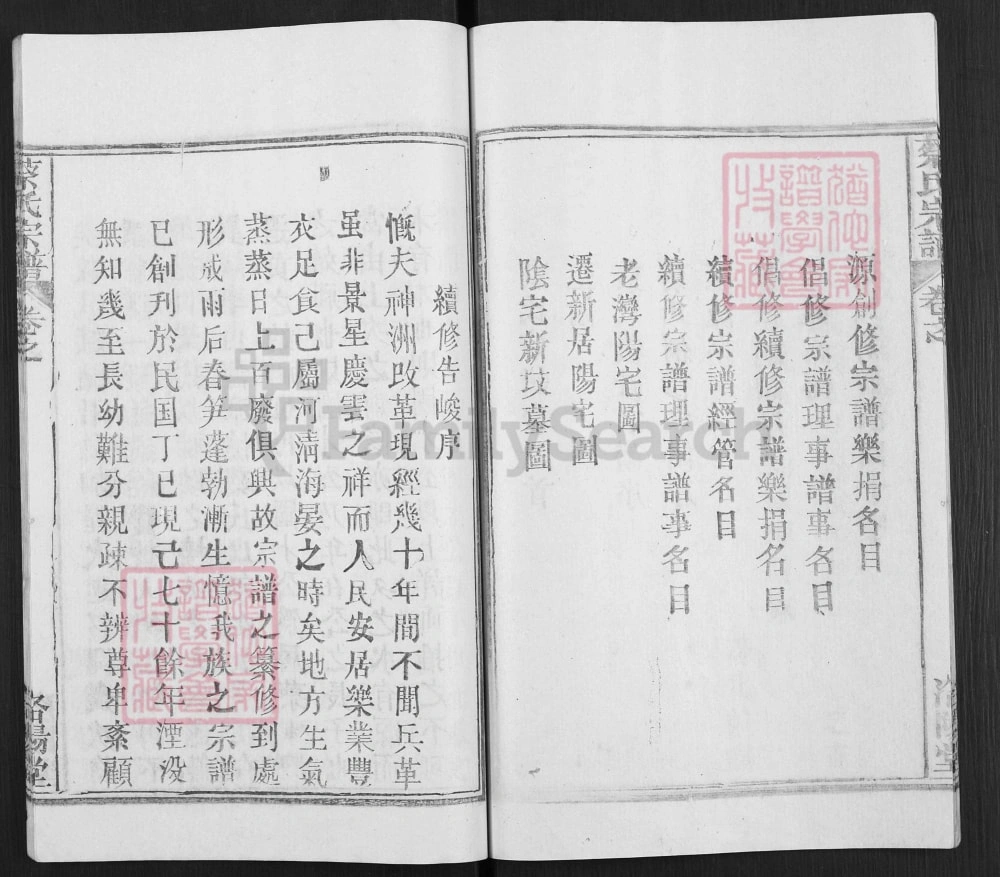 蔡氏宗譜 卷之
洛陽堂
源創修宗譜樂捐名目
倡修宗譜理事譜事名目
倡修續修宗譜樂捐名目
續修宗譜經管名目
續修宗譜理事譜事名目
老灣陽宅圖
遷新居陽宅圖
陰宅新坟墓圖
續修告峻序
慨夫神洲改革現經幾十年間不聞兵革
虽非景星慶雲之祥而人民安居樂業豐
衣足食己屬河清海晏之時矣地方生氣
蒸蒸日上百廢俱興故宗譜之纂修到處
形成雨后春笋蓬勃漸生憶我族之宗譜
已創刊於民国丁已現己七十餘年湮没
無知幾至長幼難分親疎不辨尊卑紊顧
蔡氏宗譜 卷之
洛陽堂
FamilySearch